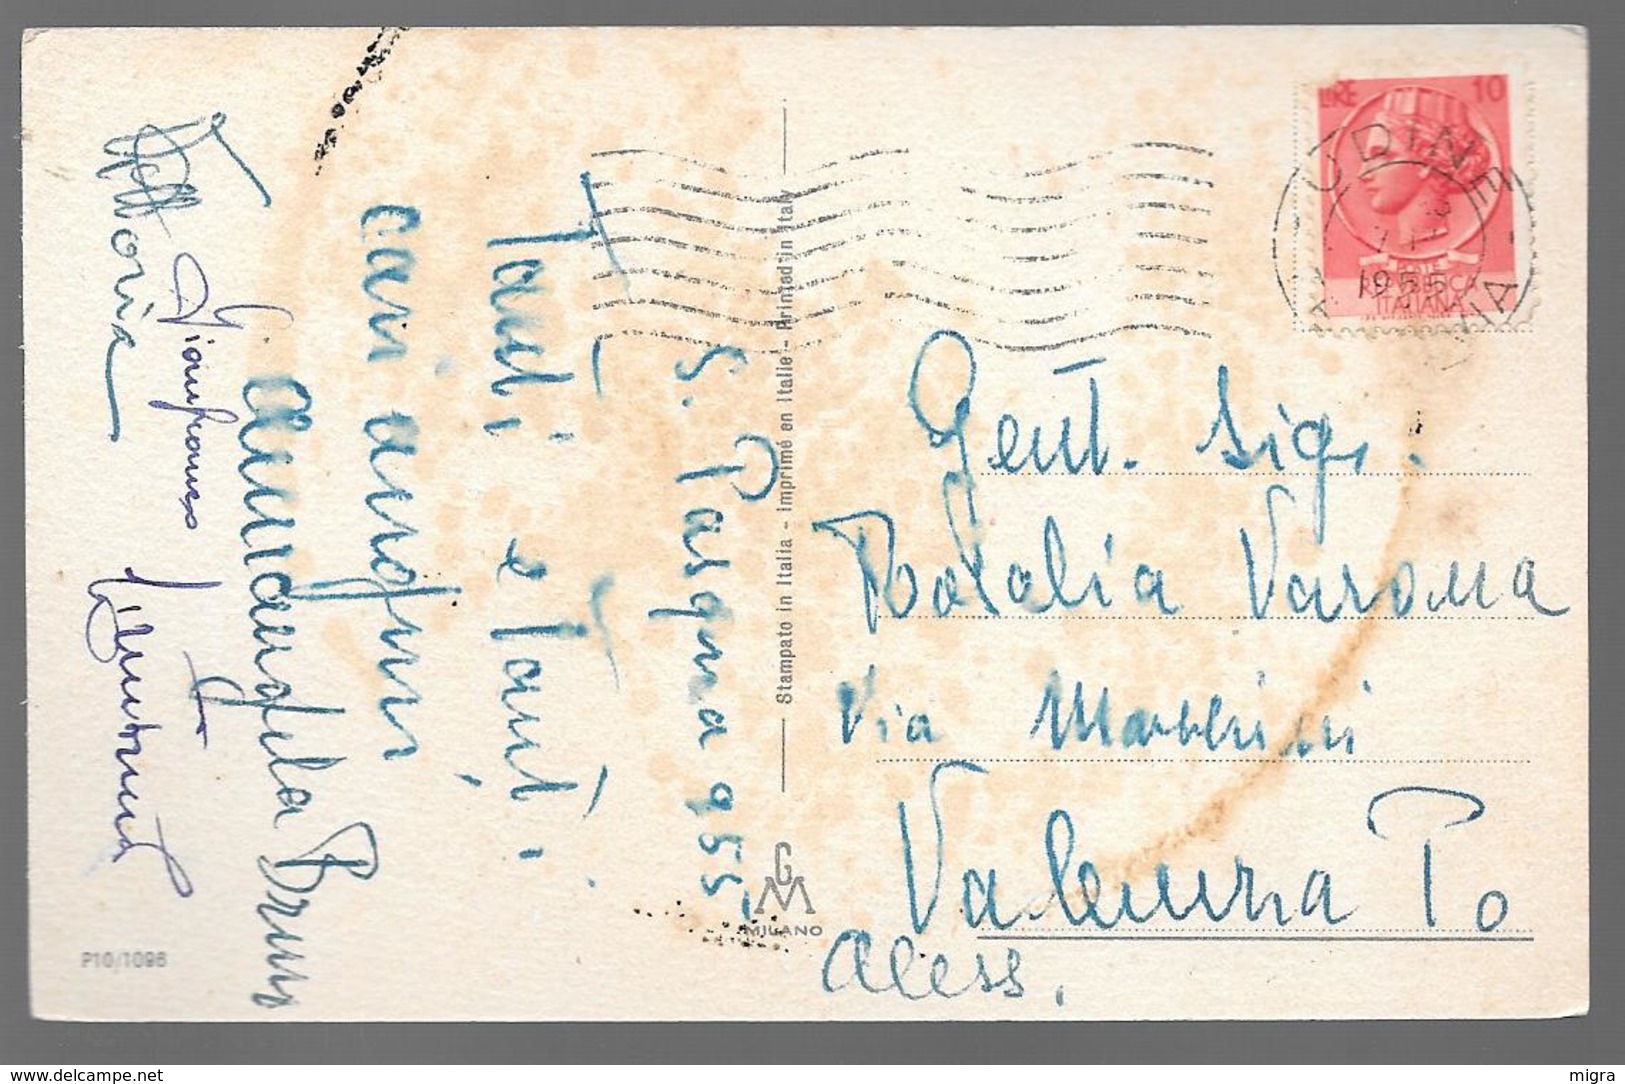 S. Pasqua 955
Tanti e tanti
cari auguri
Mariangela Bruni
Gianfranco
Vittoria
Stampato in Italia - Imprimé en Italie - Printed in Italy
GM
MILANO
P10/1096
LIRE 10
UDINE
1955
REPUBBLICA
ITALIANA
Gent. Sig.
Natalia Varona
Via
Valenza Po
Aless.
www.delcampe.net
migra